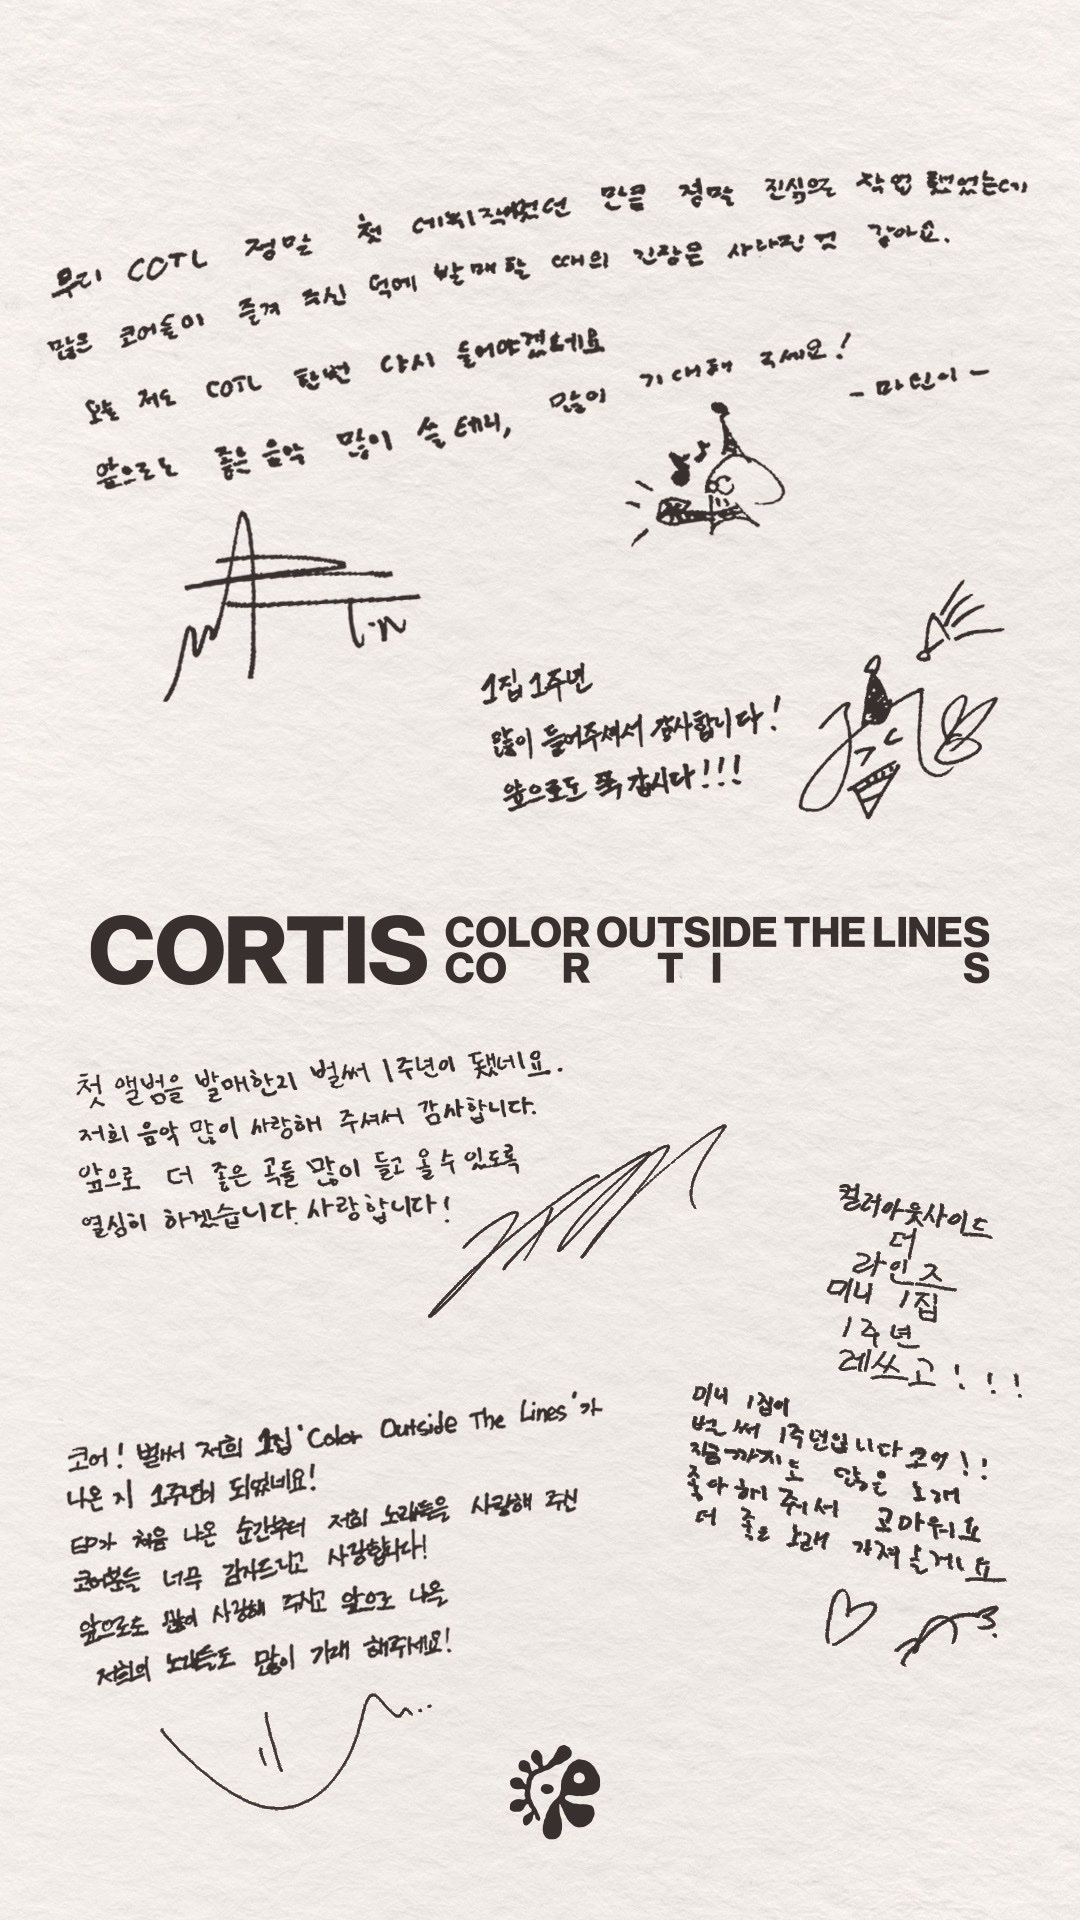 우리 COTL 정말 첫 데뷔작이었던 만큼 정말 진심으로 작업 했었는데
많은 코어들이 즐겨 주신 덕에 발매할 때의 긴장은 사라진 것 같아요.
오늘 저도 COTL 한번 다시 들어야겠네요
앞으로도 좋은 음악 많이 쓸 테니, 많이 기대해 주세요!
- 마틴이 -
1집 1주년
많이 들어주셔서 감사합니다!
앞으로도 쭉 갑시다!!!
CORTIS COLOR OUTSIDE THE LINES
CO R T I S
첫 앨범을 발매한지 벌써 1주년이 됐네요.
저희 음악 많이 사랑해 주셔서 감사합니다.
앞으로 더 좋은 곡들 많이 들고 올 수 있도록
열심히 하겠습니다. 사랑합니다!
컬러아웃사이드
더
라인즈
미니 1집
1주년
레쓰고!!!
코어! 벌써 저희 1집 'Color Outside The Lines'가
나온 지 1주년이 되었네요!
EP가 처음 나온 순간부터 저희 노래들을 사랑해 주신
코어분들 너무 감사드리고 사랑합니다!
앞으로도 많이 사랑해 주시고 앞으로 나올
저희의 노래들도 많이 기대 해주세요!
미니 1집이
벌써 1주년입니다 코어!!
지금까지도 많은 노래
좋아해 줘서 고마워요
더 좋은 노래 가져올게요